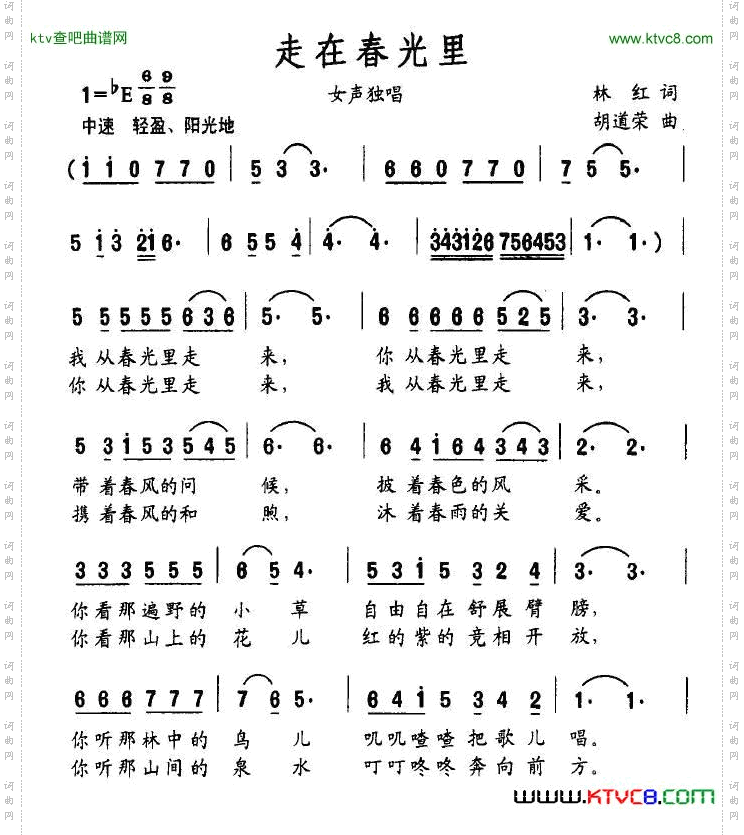 ktv查吧曲谱网
走在春光里
www.ktvc8.com
1=♭E 6/8 9/8
女声独唱
林 红 词
中速 轻盈、阳光地
胡道荣 曲
(i i 0 7 7 0 | 5 3 3· | 6 6 0 7 7 0 | 7 5 5· |
5 i 3 2 i 6· | 6 5 5 4 | 4· 4· | 3 4 3 1 2 6 7 5 6 4 5 3 | 1· 1· ) |
5 5 5 5 5 6 3 6 | 5· 5· | 6 6 6 6 6 5 2 5 | 3· 3· |
我从春光里走 来, 你从春光里走 来,
你从春光里走 来, 我从春光里走 来,
5 3 i 5 3 5 4 5 | 6· 6· | 6 4 i 6 4 3 4 3 | 2· 2· |
带着春风的问 候, 披着春色的风 采。
携着春风的和 煦, 沐着春雨的关 爱。
3 3 3 5 5 5 | 6 5 4· | 5 3 i 5 3 2 4 | 3· 3· |
你看那遍野的 小 草 自由自在舒展臂 膀,
你看那山上的 花 儿 红的紫的竞相开 放,
6 6 6 7 7 7 | 7 6 5· | 6 4 i 5 3 4 2 | 1· 1· |
你听那林中的 鸟 儿 叽叽喳喳把歌儿 唱。
你听那山间的 泉 水 叮叮咚咚奔向前 方。
www.KTVC8.com
词曲网